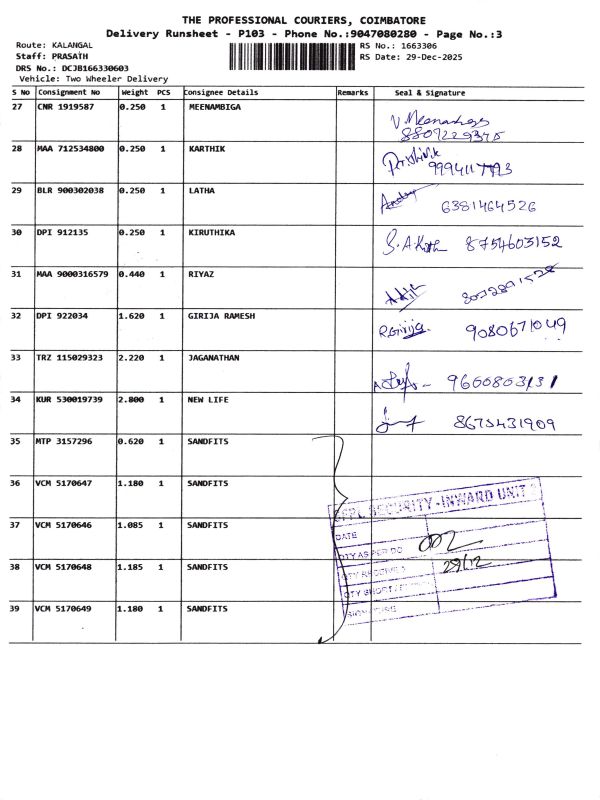 THE PROFESSIONAL COURIERS, COIMBATORE
Delivery Runsheet - P103 - Phone No.:9047080280 - Page No.:3
Route: KALANGAL
RS No.: 1663306
Staff: PRASATH
RS Date: 29-Dec-2025
DRS No.: DCJB166330603
Vehicle: Two Wheeler Delivery
S No Consignment No Weight PCS Consignee Details Remarks Seal & Signature
27 CNR 1919587 0.250 1 MEENAMBIGA
V Meenambiga
8807229375
28 MAA 712534800 0.250 1 KARTHIK
29 BLR 900302038 0.250 1 LATHA
6381464526
30 DPI 912135 0.250 1 KIRUTHIKA
8754603152
31 MAA 9000316579 0.440 1 RIYAZ
32 DPI 922034 1.620 1 GIRIJA RAMESH
R.Girija. 9080671049
33 TRZ 115029323 2.220 1 JAGANATHAN
34 KUR 530019739 2.800 1 NEW LIFE
8675431909
35 MTP 3157296 0.620 1 SANDFITS
36 VCM 5170647 1.180 1 SANDFITS
SECURITY - INWARD UNIT
37 VCM 5170646 1.085 1 SANDFITS
DATE
QTY AS PER DC
29/12
38 VCM 5170648 1.185 1 SANDFITS
39 VCM 5170649 1.180 1 SANDFITS